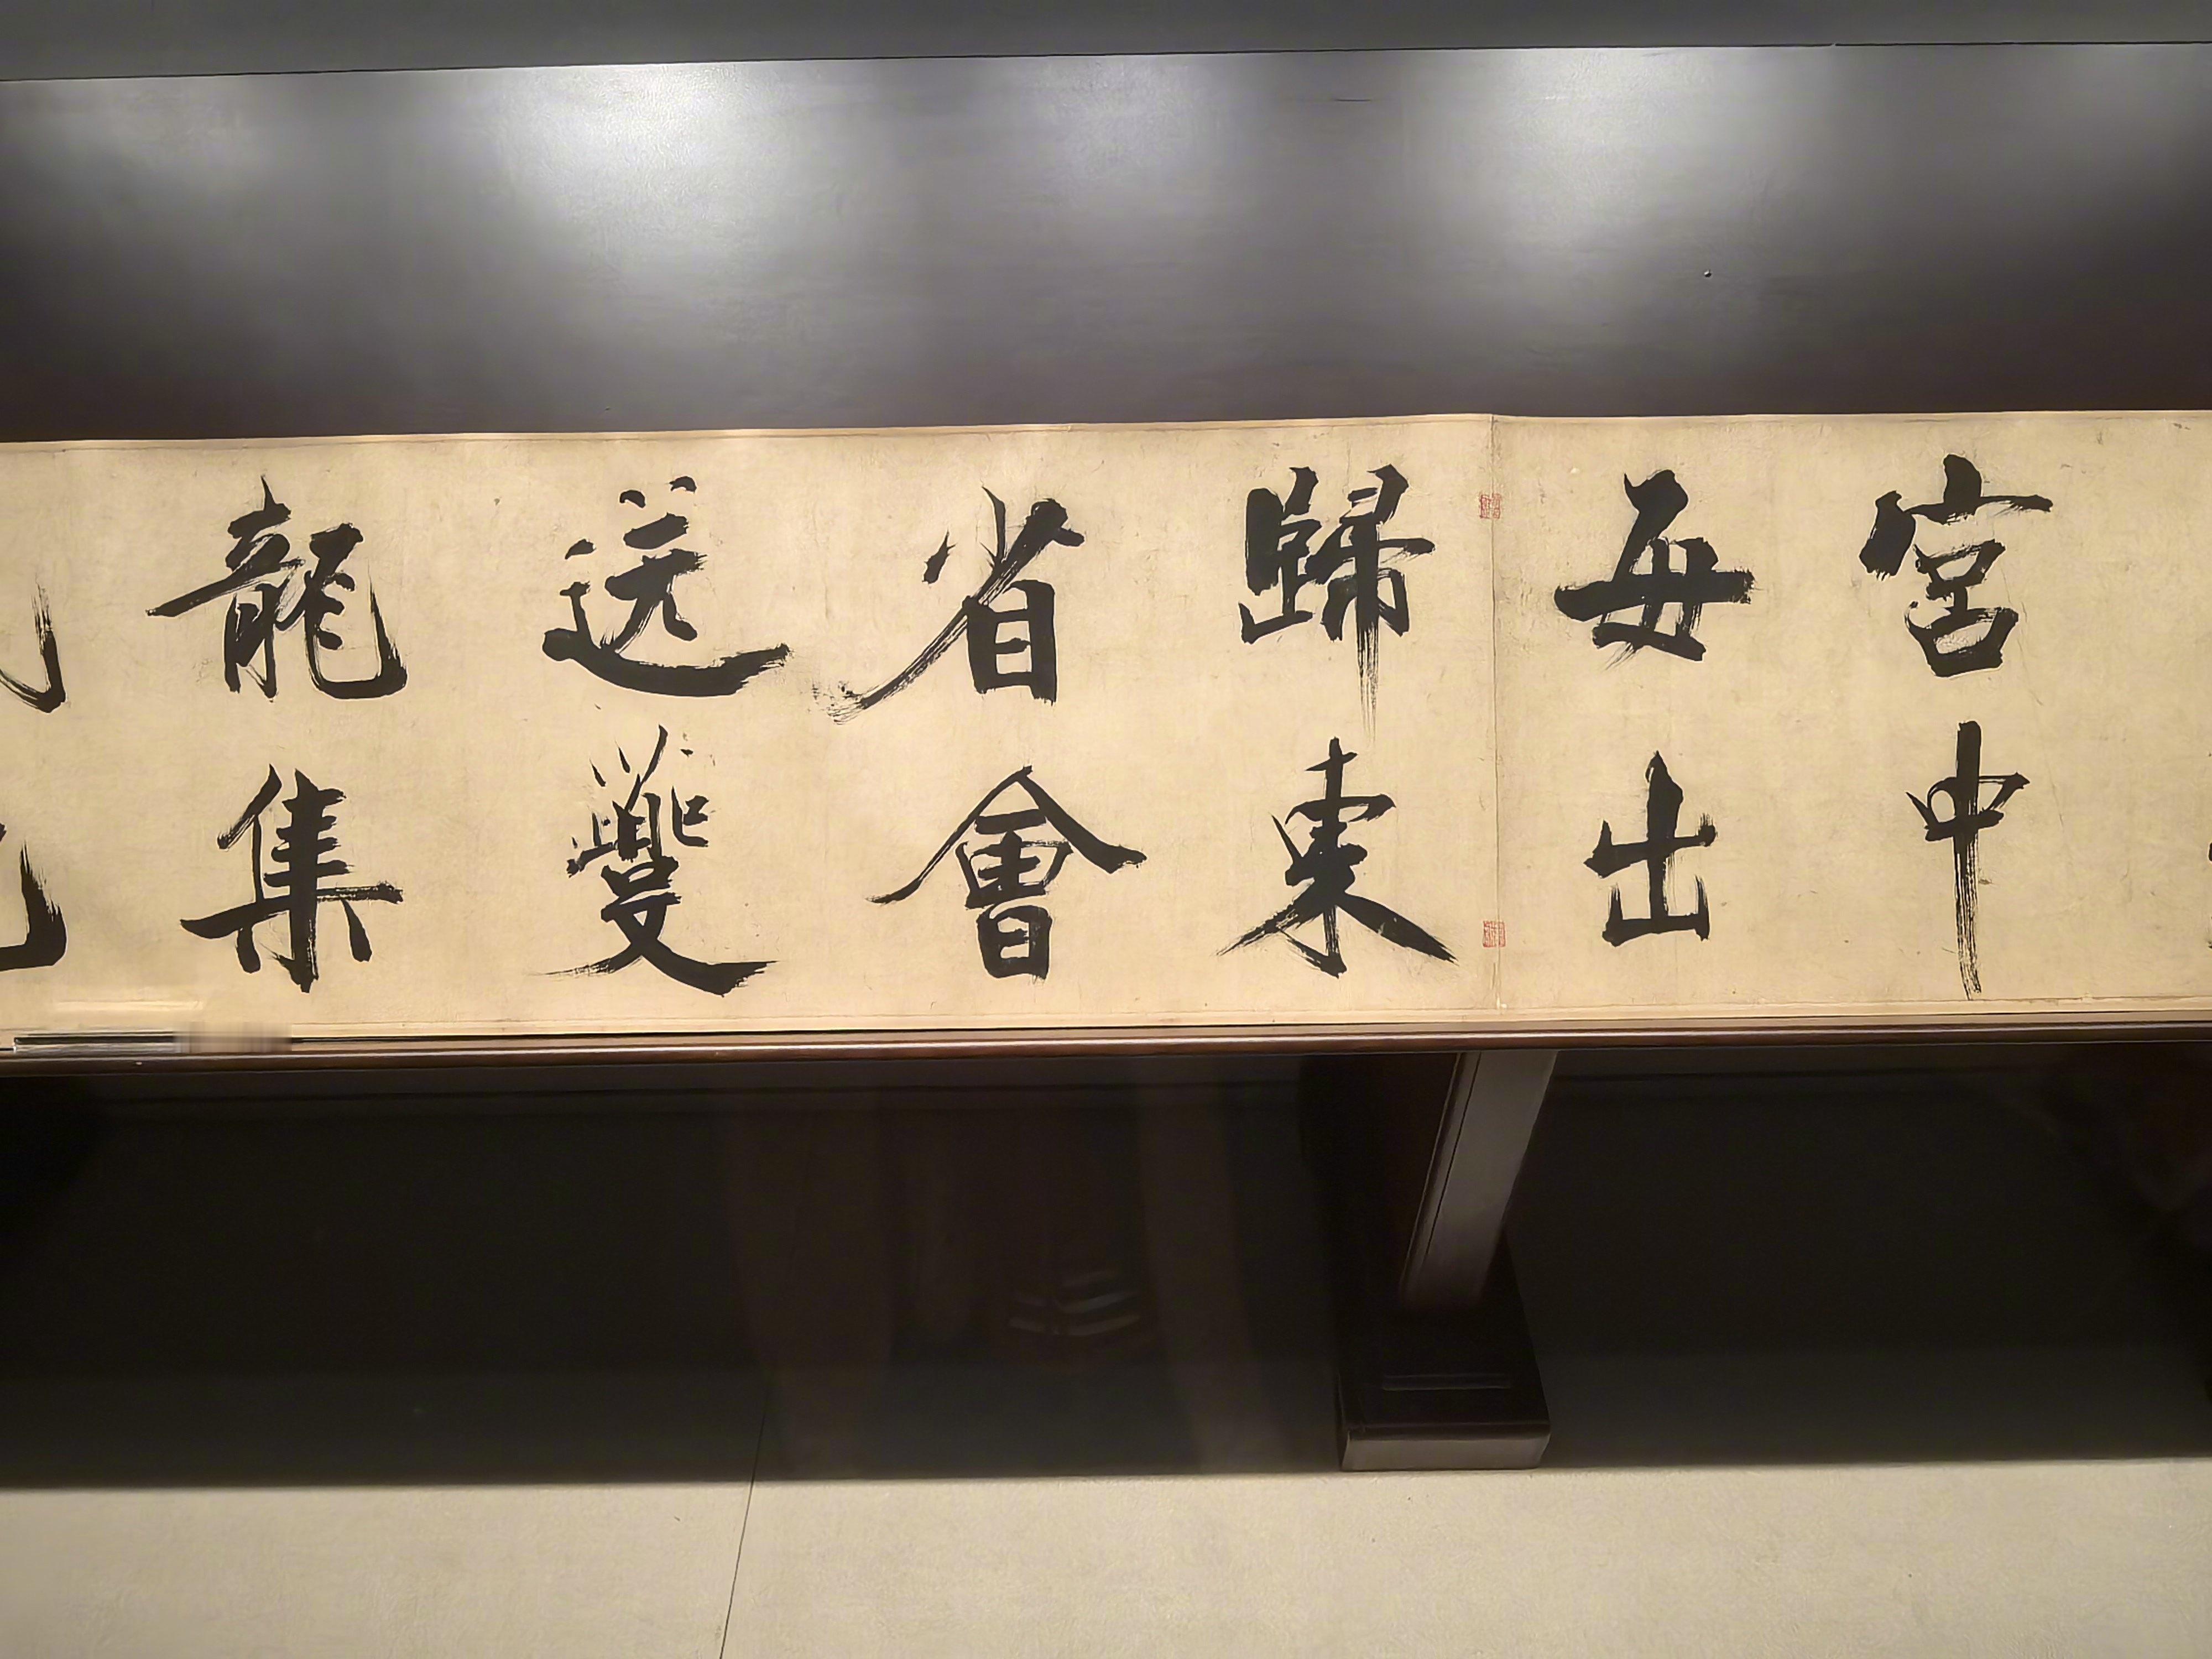 宮中
每出
歸東
省會
送夔
龍集